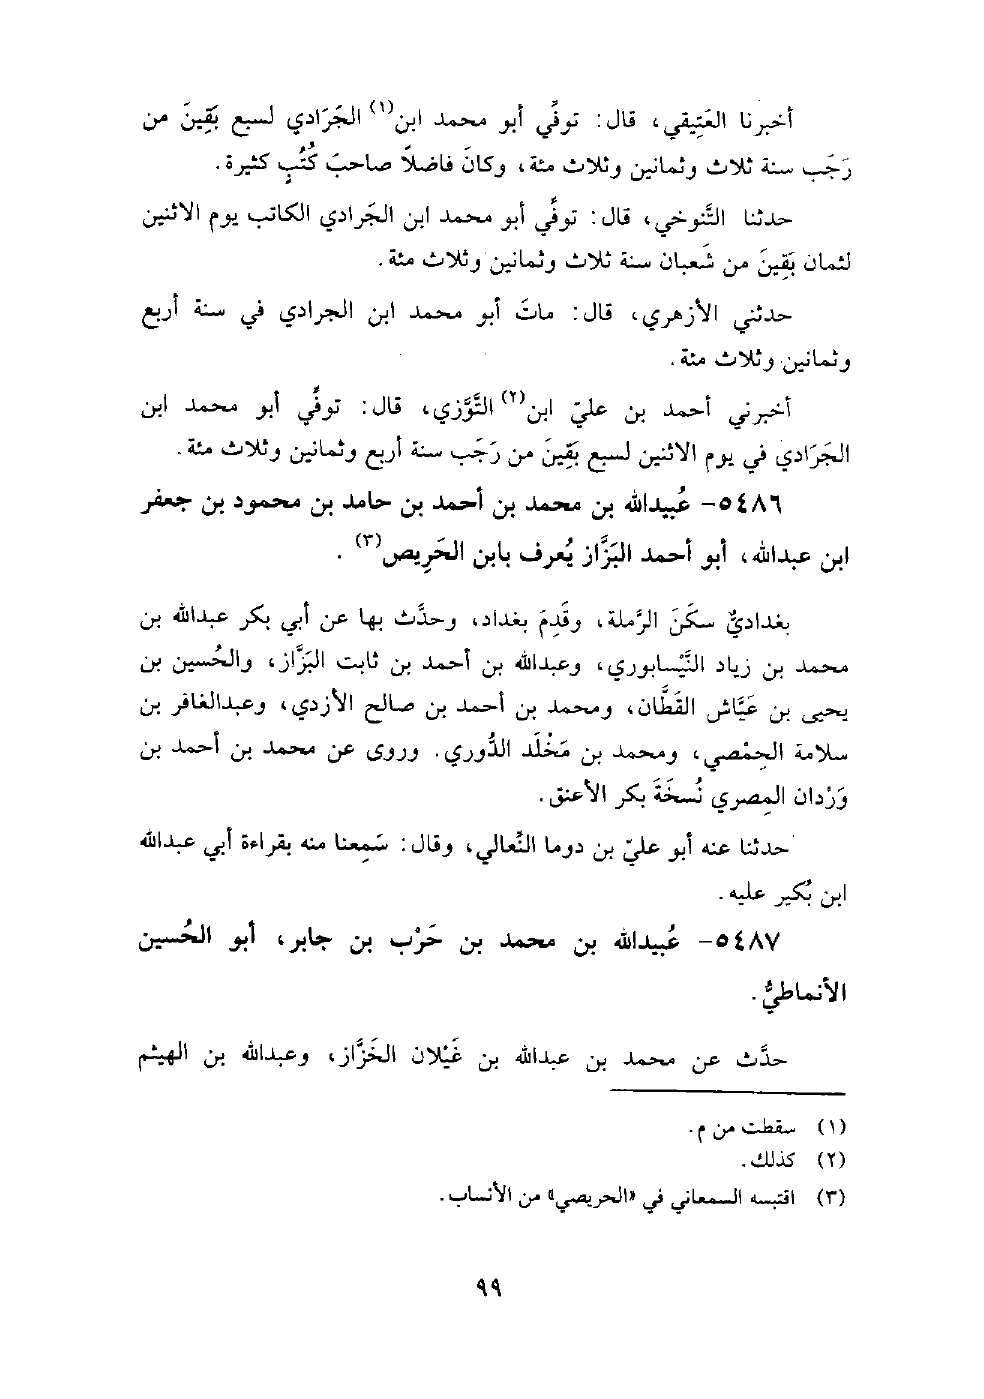 أخبرنا العَتِيقي، قال: توفِّي أبو محمد ابن(١) الجَرَادي لسبع بَقِينَ من
رَجَب سنة ثلاث وثمانين وثلاث مئة، وكانَ فاضلاً صاحبَ كُتُبٍ كثيرة.
حدثنا التَّنوخي، قال: توفِّي أبو محمد ابن الجَرادي الكاتب يوم الاثنين
لثمان بَقِينَ من شَعبان سنة ثلاث وثمانين وثلاث مئة.
حدثني الأزهري، قال: ماتَ أبو محمد ابن الجرادي في سنة أربع
وثمانين وثلاث مئة.
أخبرني أحمد بن عليّ ابن(٢) التَّوَّزي، قال: توفِّي أبو محمد ابن
الجَرَادي في يوم الاثنين لسبع بَقِينَ من رَجَب سنة أربع وثمانين وثلاث مئة.
٥٤٨٦- عُبيدالله بن محمد بن أحمد بن حامد بن محمود بن جعفر
ابن عبدالله، أبو أحمد البَزَّاز يُعرف بابن الحَرِيص(٣).
بغداديٌّ سكَنَ الرَّملة، وقَدِمَ بغداد، وحدَّث بها عن أبي بكر عبدالله بن
محمد بن زياد النَّيْسابوري، وعبدالله بن أحمد بن ثابت البَزَّاز، والحُسين بن
يحيى بن عَيَّاش القَطَّان، ومحمد بن أحمد بن صالح الأزدي، وعبدالغافر بن
سلامة الحِمْصي، ومحمد بن مَخْلَد الدُّوري. وروى عن محمد بن أحمد بن
وَرْدان المِصري نُسخَةَ بكر الأعنق.
حدثنا عنه أبو عليّ بن دوما النِّعالي، وقال: سَمِعنا منه بقراءة أبي عبدالله
ابن بُكير عليه.
٥٤٨٧- عُبيدالله بن محمد بن حَرْب بن جابر، أبو الحُسين
الأنماطيُّ.
حدَّث عن محمد بن عبدالله بن غَيْلان الخَزَّاز، وعبدالله بن الهيثم
(١) سقطت من م.
(٢) كذلك.
(٣) اقتبسه السمعاني في «الحريصي» من الأنساب.
٩٩